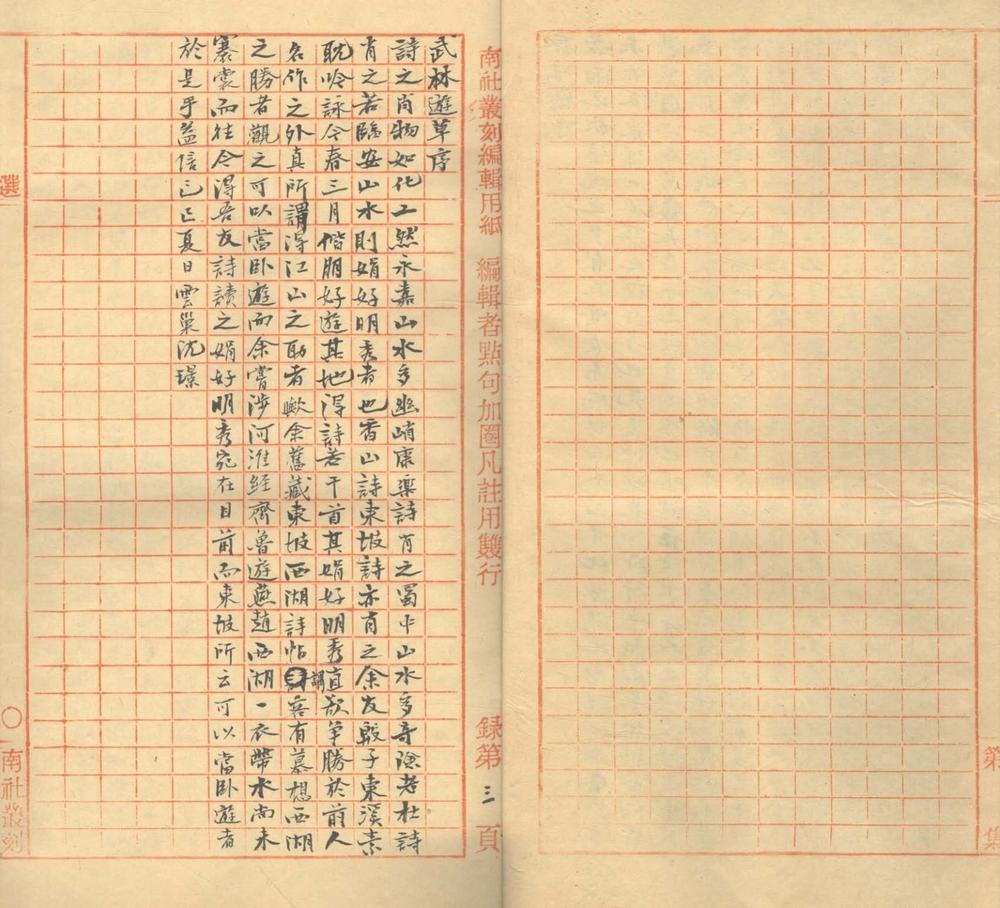 第
集
南社叢刻編輯用紙　編輯者點句加圈凡註用雙行
錄第三頁
武林遊草序
詩之肖物如化工然永嘉山水多幽峭康樂詩肖之蜀中山水多奇險老杜詩
肖之若臨安山水則娟好明秀者也香山詩東坡詩亦肖之余友毅子東溪素
耽吟詠今春三月偕朋好遊其地得詩若干首其娟好明秀直欲爭勝於前人
名作之外真所謂得江山之助者歟余舊藏東坡西湖詩帖謂客有慕想西湖
之勝者觀之可以當臥遊而余嘗涉河淮經齊魯遊燕趙西湖一衣帶水尚未
褰裳而往今得吾友詩讀之娟好明秀宛在目前而東坡所云可以當臥遊者
於是乎益信已巳夏日雲巢沈璟
選
〇
南社叢刻